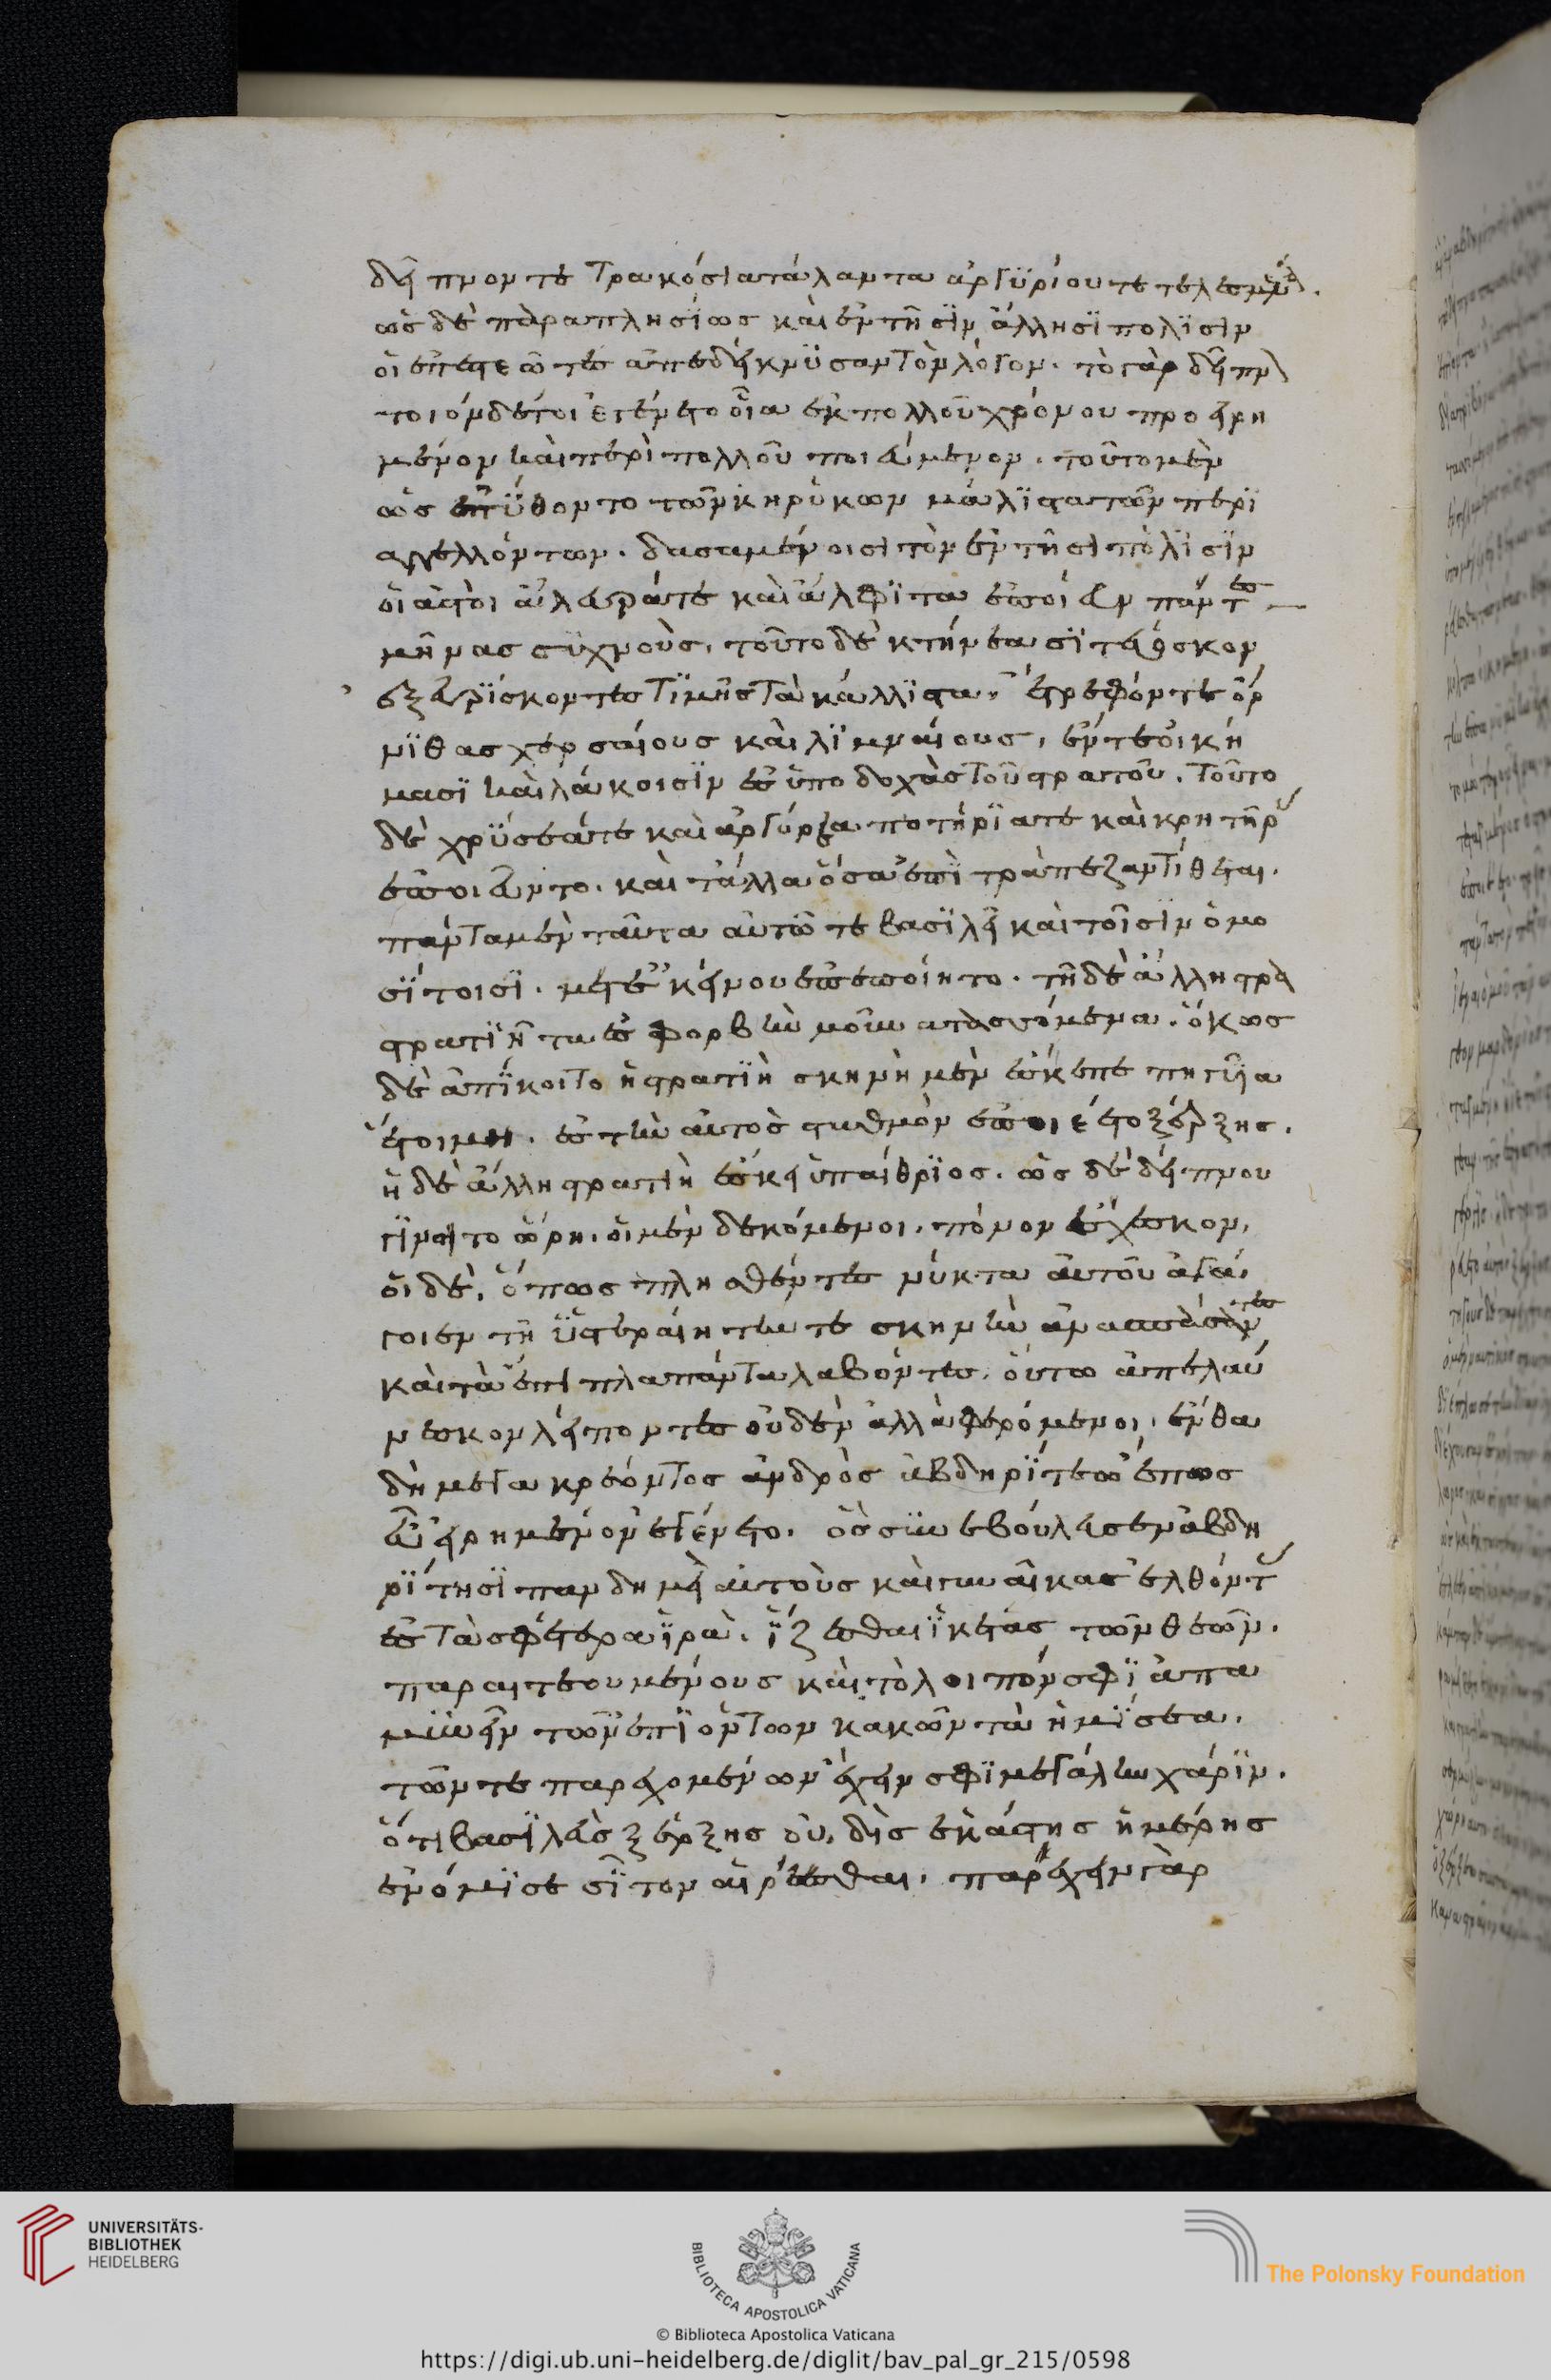 δεῖπνον τε τρακόσια τάλαντα ἀργυρίου τετελεσμένα.
ὡς δὲ παραπλησίως καὶ ἐν τῆσιν ἄλλησι πόλισιν
οἱ ἐπεστεῶτες ἀπεδείκνυσαν τὸν λόγον. τὸ γὰρ δεῖπνον
τοιόνδε τοι ἐγένετο οἷα ἐκ πολλοῦ χρόνου προειρη
μένον καὶ περὶ πολλοῦ ποιεύμενον. τοῦτο μὲν
ὡς ἐπύθοντο τῶν κηρύκων μάλιστα τῶν περι
αγγελλόντων. δασαμενοι σῖτον ἐν τῆσι πόλισιν
οἱ ἀστοὶ ἄλευρά τε καὶ ἄλφιτα ἐποίευν πάντες
μῆνας συχνούς. τοῦτο δὲ κτήνεα σιτεύεσκον
ἐξευρίσκοντες τιμῆς τὰ κάλλιστα. ἔτρεφόν τε ὄρ
νιθας χερσαίους καὶ λιμναίους, ἔν τε οἰκή
μασι καὶ λάκκοισιν ἐς ὑποδοχὰς τοῦ στρατοῦ. τοῦτο
δὲ χρύσεά τε καὶ ἀργύρεα ποτήριά τε καὶ κρητῆρας
ἐποιεῦντο. καὶ τἄλλα ὅσα ἐπὶ τράπεζαν τίθεται.
πάντα μὲν ταῦτα αὐτῶ τε βασιλεῖ καὶ τοῖσιν ὁμο
σίτοισι. μετ' ἐκείνου ἐπεποίητο. τῆ δὲ ἄλλη στρα
στρατιῆ τὰ ἐς φορβὴν μοῦνα τασσόμενα. ὅκως
δὲ ἀπίκοιτο ἡ στρατιὴ σκηνὴ μὲν ἔσκε πεπηγυῖα
ἑτοίμη. ἐς τὴν αὐτὸς σταθμὸν ἐποιέετο ξέρξης.
ἡ δὲ ἄλλη στρατιὴ ἔσκε ὑπαίθριος. ὡς δὲ δείπνου
γίνοιτο ὥρη. οἱ μὲν δεκόμενοι. πόνον ἔχεσκον,
οἱ δὲ, ὅπως πλησθέντες νύκτα αὐτοῦ ἀγά
γοιεν τῆ ὑστεραίη τήν τε σκηνὴν ἀνασπάσαντες
καὶ τὰ ἔπιπλα πάντα λαβόντες. οὕτω ἀπελαύ
νεσκον λείποντες οὐδὲν ἀλλὰ φερόμενοι, ἔνθα
δὴ μεγακρέοντος ἀνδρὸς ἀβδηρίτεω ἔπος
εὖ εἰρημένον ἐγένετο. ὃς συνεβούλευσεν ἀβδη
ρίτησι πανδημεὶ αὐτοὺς καὶ γυναῖκας ἐλθόντας
ἐς τὰ σφέτερα ἱρὰ. ἵζεσθαι ἱκέτας τῶν θεῶν.
παραιτεουμένους καὶ τὸ λοιπόν σφι ἀπα
μύνειν τῶν ἐπιόντων κακῶν τὰ ἡμίσεα.
τῶν τε παρεχομένων ἔχειν σφι μεγάλην χάριν.
ὅτι βασιλεὺς ξέρξης οὐ, δὶς ἑκάστης ἡμέρης
ἐνόμισε σῖτον αἱρέεσθαι. παρέχειν γὰρ
UNIVERSITÄTS-
BIBLIOTHEK
HEIDELBERG
BIBLIOTECA APOSTOLICA VATICANA
The Polonsky Foundation
© Biblioteca Apostolica Vaticana
https://digi.ub.uni-heidelberg.de/diglit/bav_pal_gr_215/0598